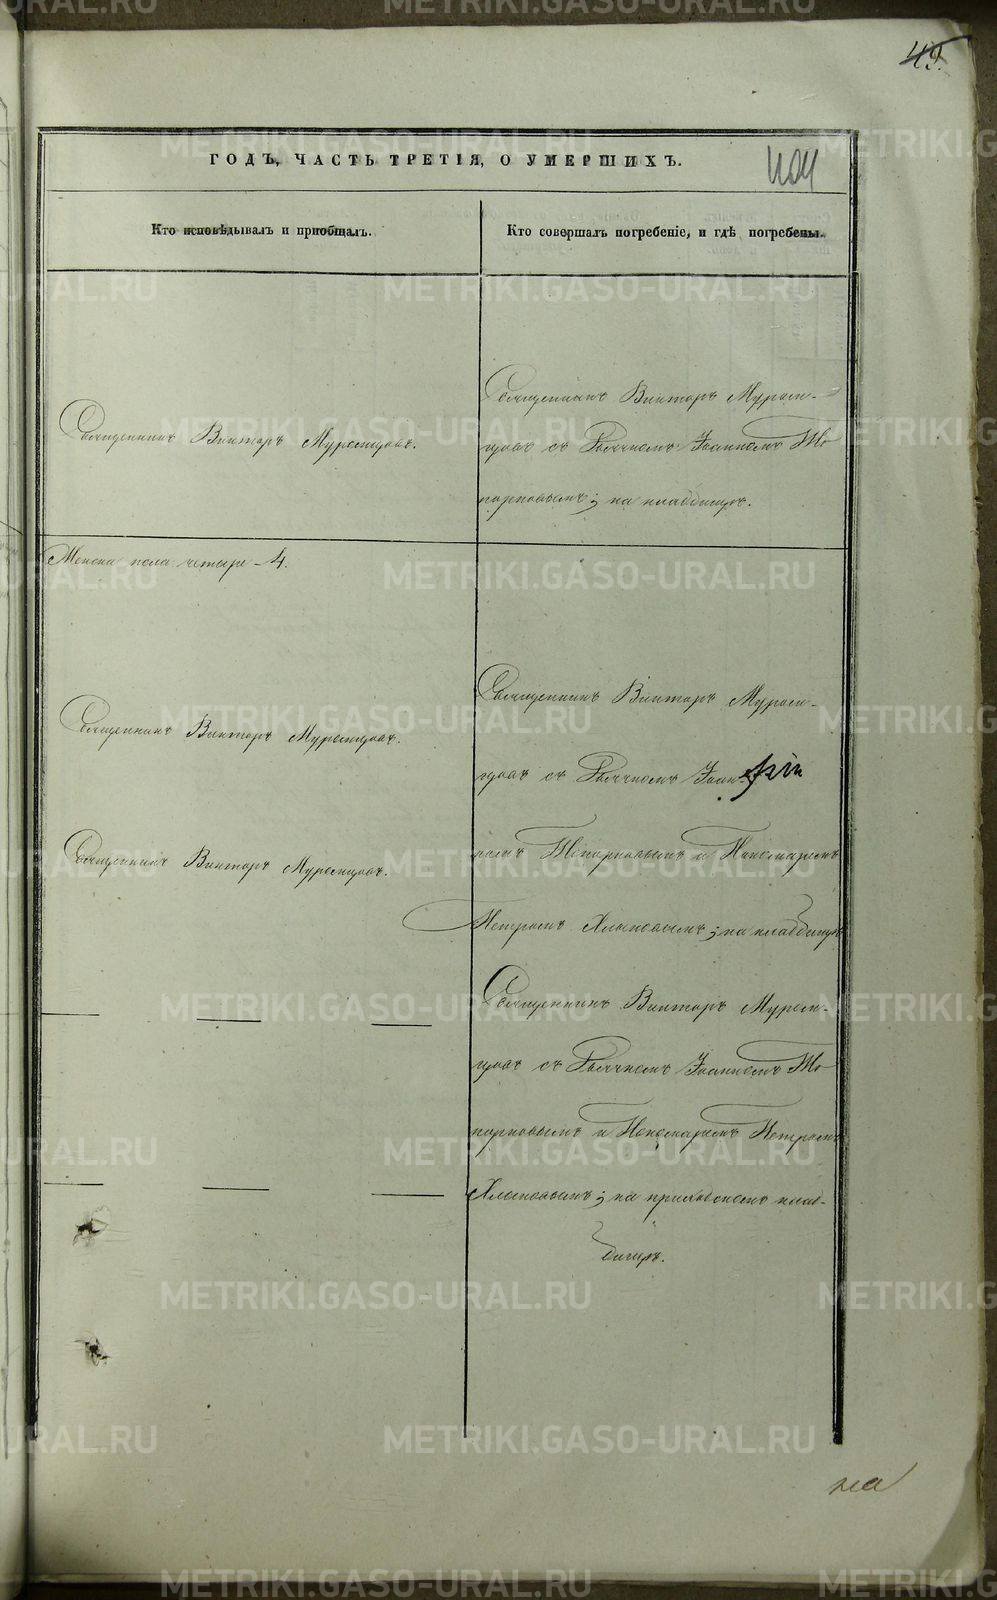 49.
ГОДЪ, ЧАСТЬ ТРЕТІЯ, О УМЕРШИХЪ.
Кто исповѣдывалъ и пріобщалъ.
Кто совершалъ погребеніе, и гдѣ погребены.
Священникъ Викторъ Муромцовъ.
Священникъ Викторъ Муром-
цовъ съ Дьячкомъ Іоанномъ То
порковымъ; на кладбищѣ.
Женска пола четыре - 4.
Священникъ Викторъ Муромцовъ.
Священникъ Викторъ Муромцовъ.
Священникъ Викторъ Муром-
цовъ съ Дьячкомъ Іоан-
номъ Топорковымъ и Пономаремъ
Петромъ Хлыновымъ; на кладбищѣ
Священникъ Викторъ Муром-
цовъ съ Дьячкомъ Іоанномъ То
порковымъ и Пономаремъ Петромъ
Хлыновымъ; на приходскомъ клад-
бищѣ.
METRIKI.GASO-URAL.RU